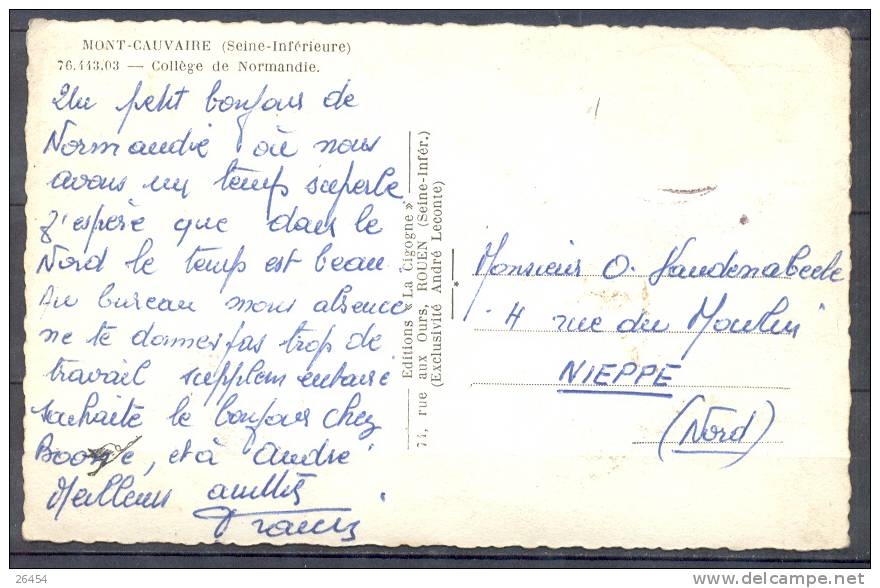 MONT-CAUVAIRE (Seine-Inférieure)
76.443.03 — Collège de Normandie.
Un petit bonjour de
Normandie où nous
avons un temps superbe
J'espère que dans le
Nord le temps est beau
Au bureau mon absence
ne te donnes pas trop de
travail supplémentaire
souhaite le bonjour chez
et à André
Meilleurs amitiés
Francis
Editions « La Cigogne »
74, rue aux Ours, ROUEN (Seine-Infér.)
(Exclusivité André Leconte)
Monsieur O. Vandenabeele
4 rue du Moulin
NIEPPE
(Nord)
26454
delcampe.net